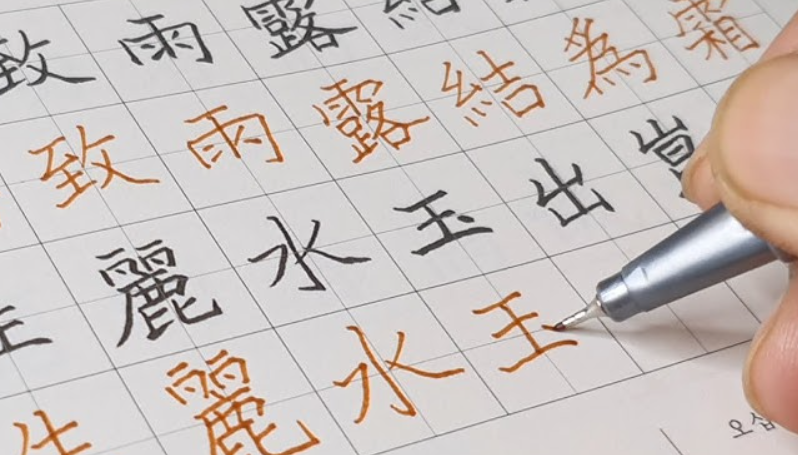 致雨露結
致雨露結為霜
生麗水玉出崑
生麗水王
오십